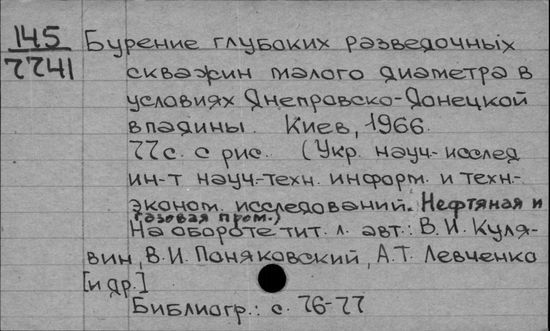 145
7741
Бурение глубоких разведочных
скважин малого диаметра в
условиях Днепровско-Донецкой
впадины. Киев, 1966.
77с. с рис. (Укр. науч.-исслед
ин-т науч.-техн. информ. и техн.-
эконом. исследований. Нефтяная и
газовая пром.)
На обороте тит. л. авт.: В.И. Куля-
вин, В.И. Поняковский, А.Т. Левченко
[и др.]
Библиогр.: с. 76-77